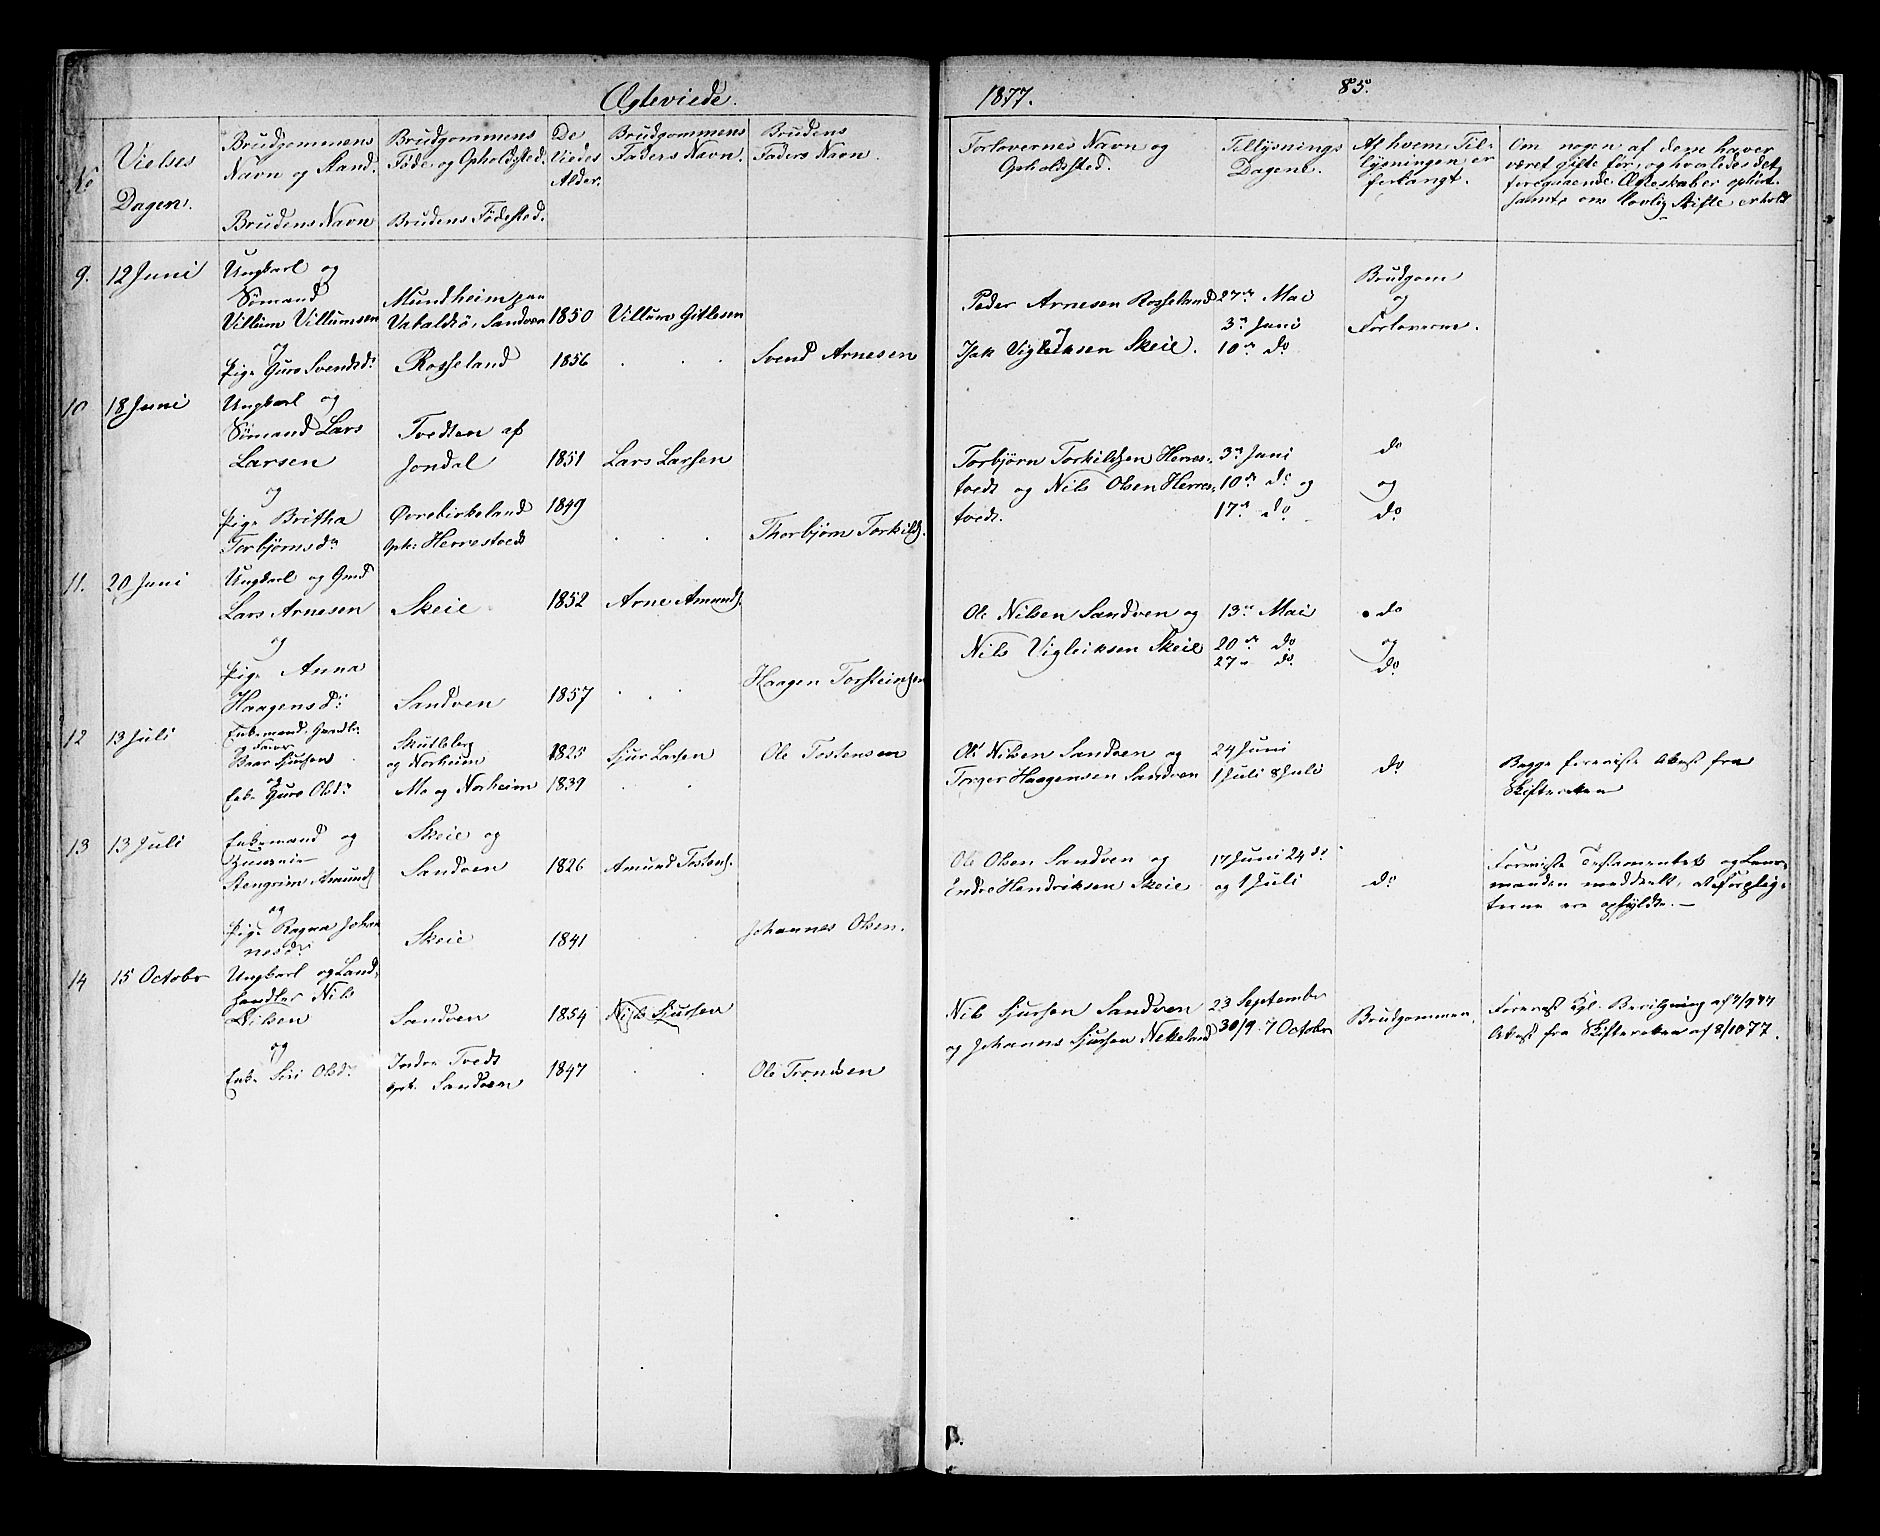 Ægteviede.
1877.
85.
No
Vielses
Dagen.
Brudgommens
Navn og Stand.
Brudens Navn
Brudgommens
Føde og Opholdsted.
Brudens Fødested.
De
Viedes
Alder.
Brudgommens
Faders Navn.
Brudens
Faders Navn.
Forlovernes Navn og
Opholdsted.
Tillysnings
Dagene.
Af hvem Til-
lysningen er
forlangt.
Om nogen af dem haver
været gifte før, og hvorledes det
foregaaende Ægteskab er ophørt
samt om lovlig Skifte erholdt
9.
12 Juni
Ungkarl og
Sømand
Villum Villumsen
og
Pige Guro Svendsdr
Mundheim paa
Sandven
Rosseland
1850
1856
Villum Gitlesen
Svend Arnesen
Peder Arnesen Rosseland
og
Isak Vigleiksen Skeie.
27de Mai
3de Juni
10de do
Brudgom
og
Forloverne.
10
18 Juni
Ungkarl og
Sømand Lars
Larsen
og
Pige Britha
Torbjørnsdr
Tvedten af
Jondal
Øvrebirkeland
oph: Herrestvedt
1851
1849
Lars Larsen
Thorbjørn Torkilds.
Torbjørn Torkildsen Herres-
tvedt og Nils Olsen Herres-
tvedt.
3de Juni
10de do og
17de do
do
og
do
11.
20 Juni
Ungkarl og Gmd
Lars Arnesen
og
Pige Anna
Haagensdr
Skeie
Sandven
1852
1857
Arne Amunds.
Haagen Torsteinsen
Ole Nilsen Sandven og
Nils Vigleiksen Skeie
13de Mai
20de do
27de do
do
og
do
12
13 Juli
Enkemand, Gmd
Baar Sjursen
og
Enke Guro Olsdr
Skutleberg
og Norheim
Mo og Norheim
1825
1839
Sjur Larsen
Ole Tostensen
Ole Nilsen Sandven og
Torger Haagensen Sandven
24 Juni
1 Juli 8 Juli
do
Begge foreviste Attest fra
Skifteretten
13
13 Juli
Enkemand og
Stengrim Amunds
og
Pige Ragna Johan
nesdr
Skeie og
Sandven
Skeie
1826
1841
Amund Tostens.
Johannes Olsen.
Ole Olsen Sandven og
Endre Hendriksen Skeie
17 Juni 24 do
og 1 Juli
do
Foreviste Testamentet og Lens-
manden meddeelt, at Forplig-
terne ere opfyldte.
14
15 October
Ungkarl og Land-
handler Nils
Nilsen
og
Enke Siri Olsdr
Sandven
Indre Tvedt
oph. Sandven
1854
1847
Nils Sjursen
Ole Trondsen
Nils Sjursen Sandven
og Johannes Sjursen Nekkeland
23 September
30/9. 7 October
Brudgommen.
Forevist Kgl. Bevilgning af 7/9 77
Attest fra Skifteretten af 8/10 77.